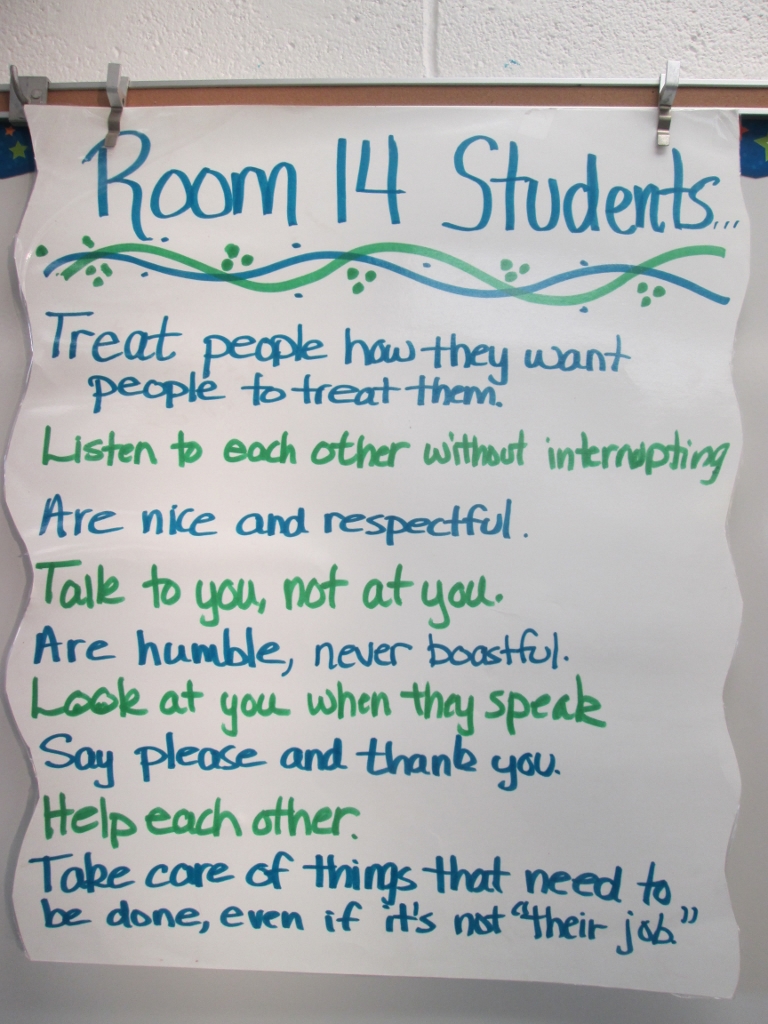 Room 14 Students...
Treat people how they want
people to treat them.
Listen to each other without interrupting
Are nice and respectful.
Talk to you, not at you.
Are humble, never boastful.
Look at you when they speak
Say please and thank you.
Help each other.
Take care of things that need to
be done, even if it's not "their job."